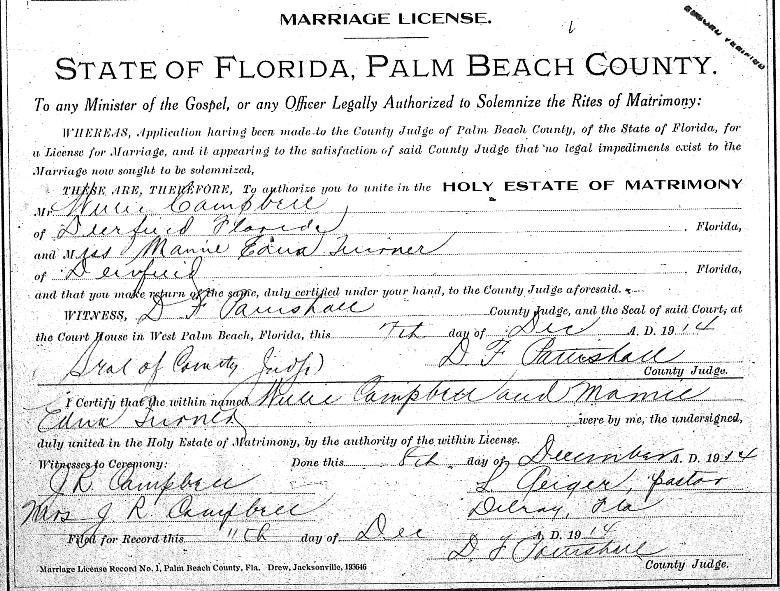 MARRIAGE LICENSE.
STATE OF FLORIDA, PALM BEACH COUNTY.
To any Minister of the Gospel, or any Officer Legally Authorized to Solemnize the Rites of Matrimony:
WHEREAS, Application having been made to the County Judge of Palm Beach County, of the State of Florida, for
a License for Marriage, and it appearing to the satisfaction of said County Judge that no legal impediments exist to the
Marriage now sought to be solemnized,
THESE ARE, THEREFORE, To authorize you to unite in the HOLY ESTATE OF MATRIMONY
Mr. Willie Campbell
of Deerfield Florida Florida,
and Miss Mamie Edna Turner
of Deerfield Florida,
and that you make return of the same, duly certified under your hand, to the County Judge aforesaid.
WITNESS, D F County Judge, and the Seal of said Court, at
the Court House in West Palm Beach, Florida, this 7th day of Dec A. D. 1914
Seal of County Judge) D. F.
County Judge.
I Certify that the within named Willie Campbell and Mamie
Edna Turner were by me, the undersigned,
duly united in the Holy Estate of Matrimony, by the authority of the within License.
Witnesses to Ceremony: Done this 8th day of December A. D. 1914
J R Campbell L Geiger, pastor
Mrs J R Campbell Delray, Fla
Filed for Record this 11th day of Dec A. D. 1914
D. F.
County Judge.
Marriage License Record No. 1, Palm Beach County, Fla. Drew, Jacksonville, 193646